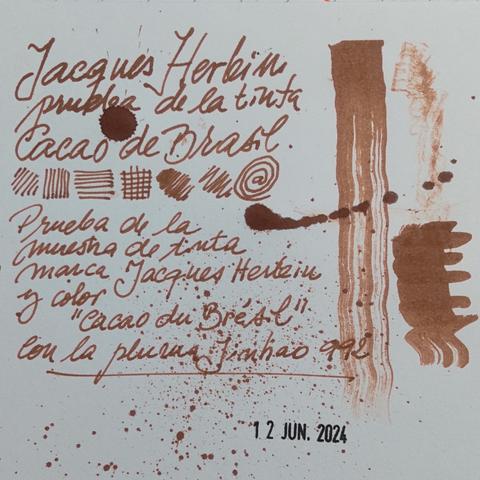 Jacques Herbin
prueba de la tinta
Cacao de Brasil.
Prueba de la
muestra de tinta
marca Jacques Herbin
y color
"Cacao du Brésil"
con la pluma Jinhao 992
12 JUN. 2024